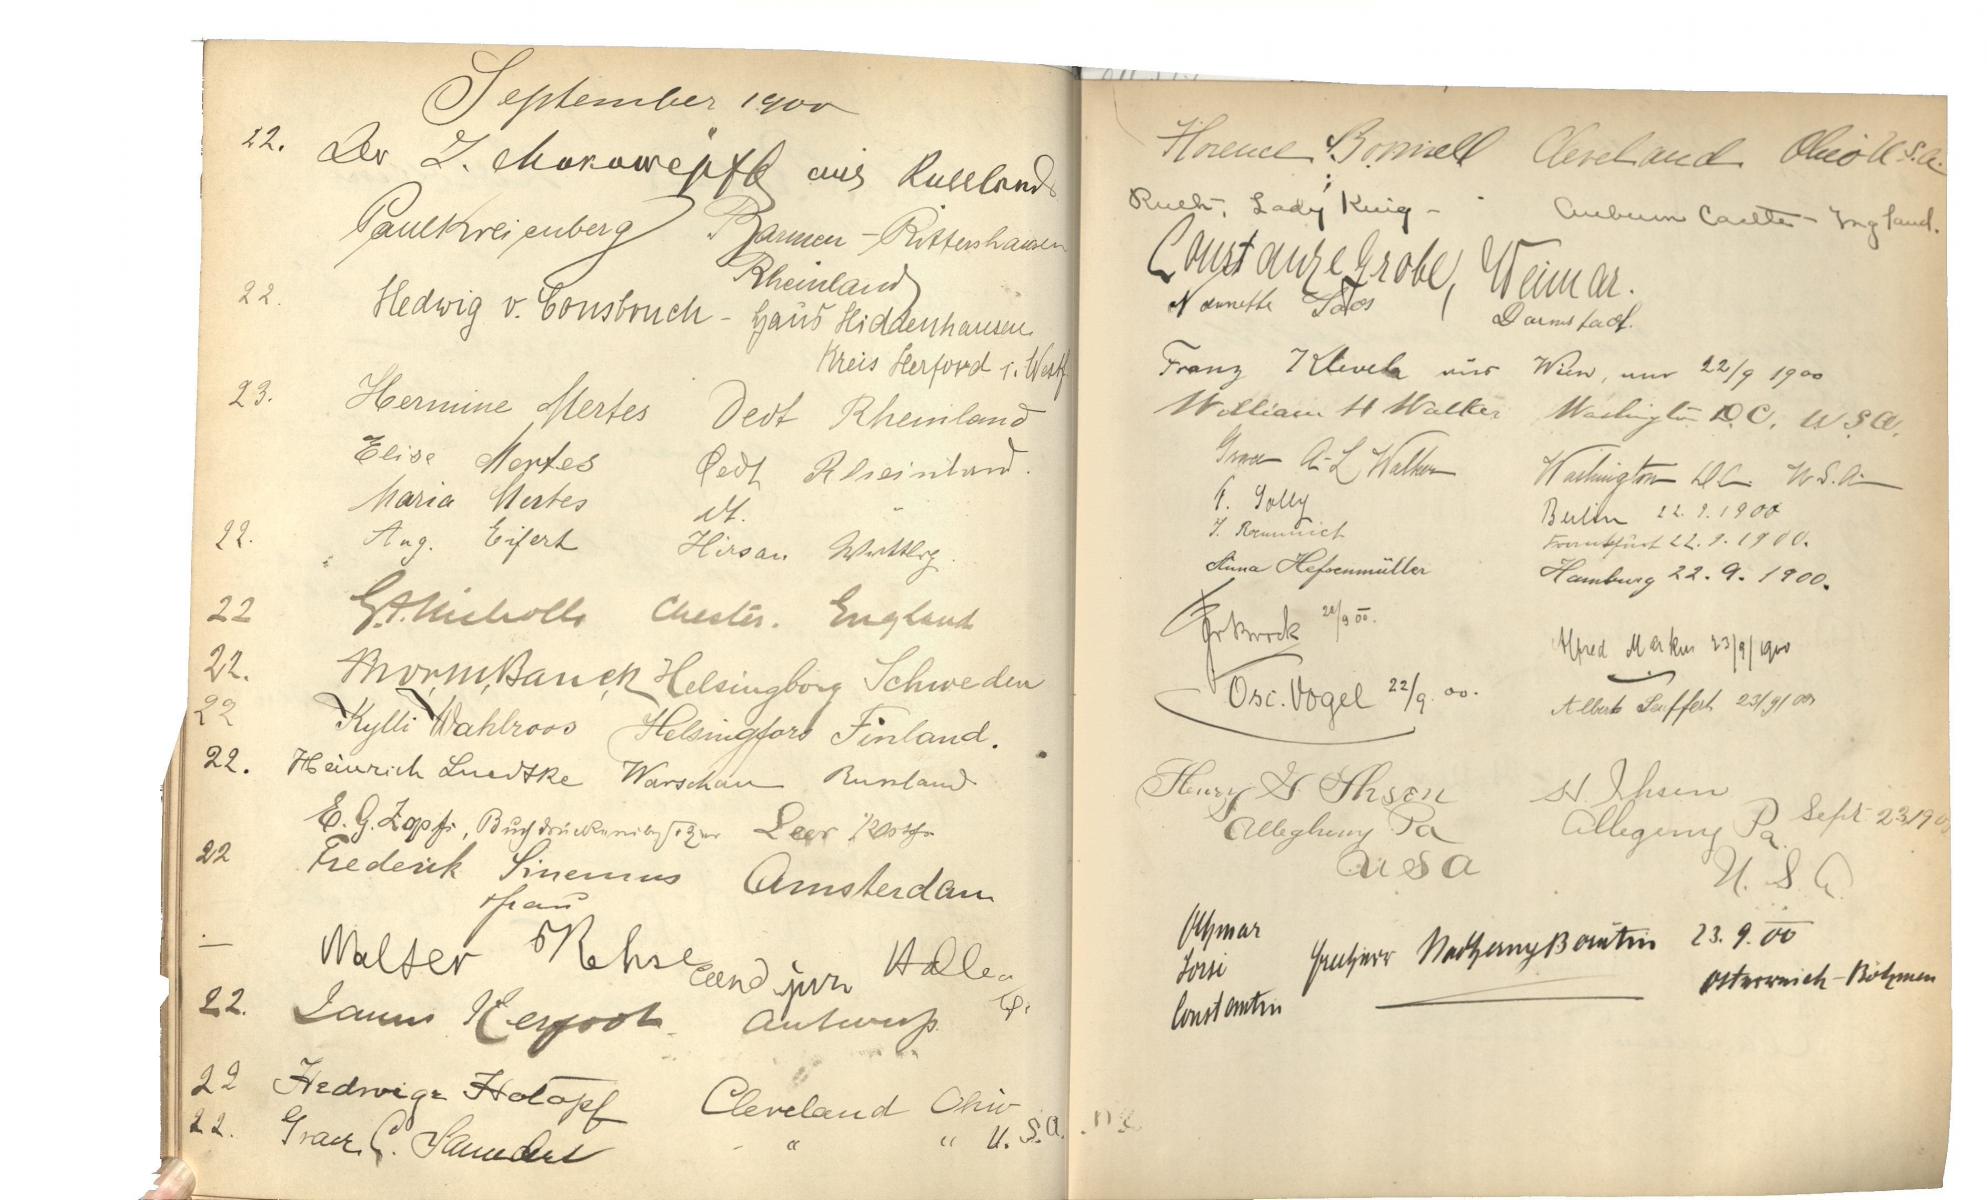 September 1900
22. Der J. aus Russland
Paul Kreienberg Barmen - Rittershausen
Rheinland
22. Hedwig v. Consbruch - Haus Hiddenhausen
Kreis Herford i. Westf
23. Hermine Mertes Oedt Rheinland
Elise Mertes Oedt Rheinland.
Maria Mertes dt. "
22. Aug. Eifert Hirsau Wurttbrg.
22 G.A. Nicholls Chester. England
22. Thorm. Banck Helsingborg Schweden
22 Kylli Wahlroos Helsingfors Finland.
22. Heinrich Luedtke Warschau Russland
E. G. Zopfs, Buchdruckereibesitzer Leer
22 Frederik Sinemus Amsterdam
& Frau
— Walter Rehse cand jur Halle a
22. Kerfoot Antwerp.
22 Hedwige Hotopf Cleveland Ohio
22. Grace C. Saunders " " U.S.A.
Florence Bonnell Cleveland Ohio U.S.A.
Ruth, Lady King - England.
Constanze Grobe, Weimar.
Nannette Darmstadt.
Franz aus Wien, am 22/9 1900
William H Walker Washington D.C. U S A.
Grace A-L Walker Washington D.C. U.S.A.
F. Solly Berlin 22.9.1900
Frankfurt 22.9.1900.
Anna Hefsenmüller Hamburg 22.9.1900.
22/9 00.
Alfred Markus 23/9/1900
Osc. Vogel 22/9. 00.
Albert Seuffert 23/9/00
Henry G Ihsen H. Ihsen
Allegheny Pa Allegeny Pa. Sept 23/1900
U S A U. S. A.
Othmar
Freiherr Nadherny Borutin 23. 9. 00
Osterreich - Böhmen
Constantin